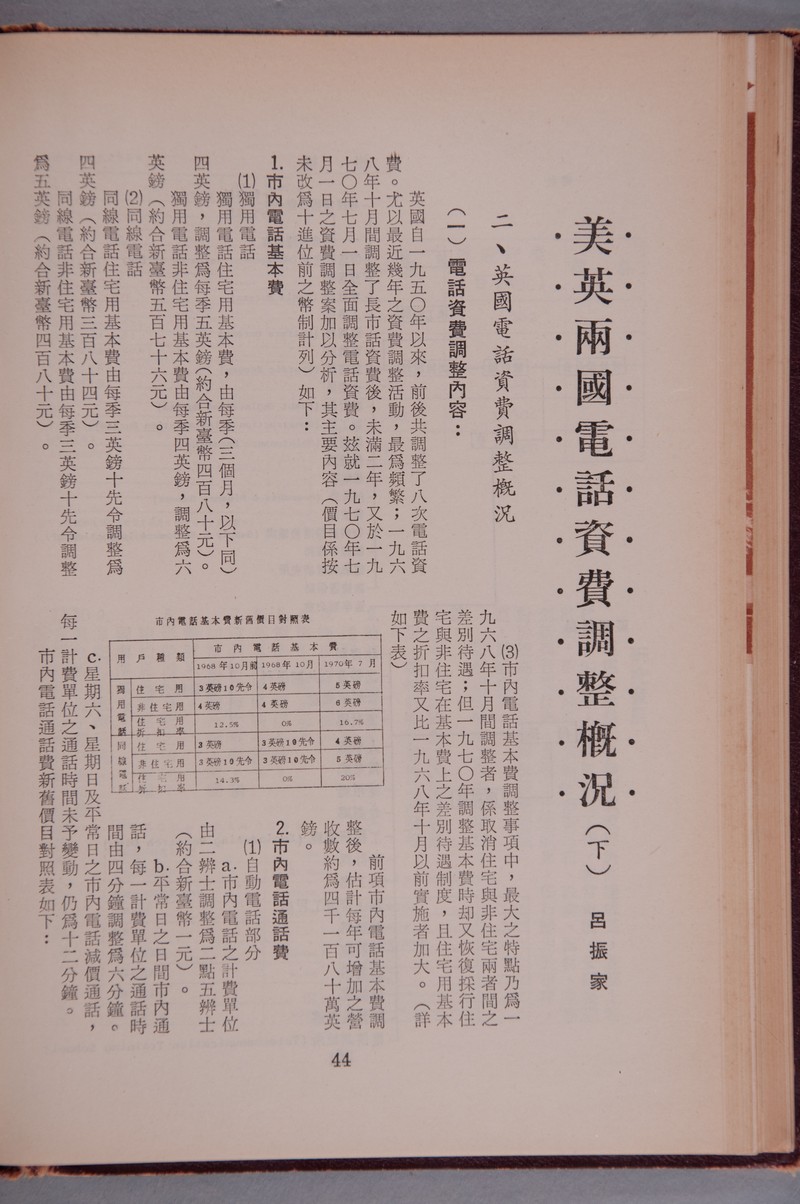 美英兩國電話資費調整概況（下）　呂振家
二、英國電話資費調整概況
（一）電話資費調整內容：
英國自一九五〇年以來，前後共調整了八次電話資
費。尤以最近幾年之資費調整活動，最爲頻繁；一九六
八年十月間調整了長市話資費後，未滿二年，又於一九
七〇年七月一日全面調整電話資費。玆就一九七〇年七
月一日之資費調整案加以分析，其主要內容（價目係按
未改爲十進位前之幣制計列）如下：
1.市內電話基本費
⑴獨用電話
獨用電話住宅用基本費，由每季（三個月，以下同）
四英鎊，調整爲每季五英鎊（約合新臺幣四百八十元）。
獨用電話非住宅用基本費由每季四英鎊，調整爲六
英鎊（約合新臺幣五百七十六元）。
⑵同線電話
同線電話住宅用基本費由每季三英鎊十先令調整爲
四英鎊（約合新臺幣三百八十四元）。
同線電話非住宅用基本費由每季三英鎊十先令調整
爲五英鎊（約合新臺幣四百八十元）。
⑶市內電話基本費調整事項中，最大之特點乃爲一
九六八年十月間調整者，係取消住宅與非住宅兩者間之
差別待遇；但一九七〇年調整基本費時却又恢復採行住
宅與非住宅在基本費上之差別待遇制度，且住宅用基本
費之折扣率又比一九六八年十月以前實施者加大。（詳
如下表）
市內電話基本費新舊價目對照表
用戶種類　市內電話基本費
1968年10月前　1968年10月　1970年7月
獨用電話　住宅用　3英磅10先令　4英磅　5英磅
非住宅用　4英磅　4英磅　6英磅
住宅用折扣率　12.5%　0%　16.7%
同線電話　住宅用　3英磅　3英磅10先令　4英磅
非住宅用　3英磅10先令　3英磅10先令　5英磅
住宅用折扣率　14.3%　0%　20%
前項市內電話基本費調
整後，估計每年可增加之營
收數約爲四千一百八十萬英
鎊。
2.市內電話通話費
⑴自動電話部分
a.市內電話之計費單位
由二辨士調整爲二點五辨士
（約合新臺幣一元）。
b.平常日之日間市內通
話，每一計費單位之通話時
間由四分鐘調整爲六分鐘。
c.星期六、星期日及平常日之市內電話減價通話，
每一計費單位之通話時間未予變動，仍爲十二分鐘。
市內電話通話費新舊價目對照表如下：
44